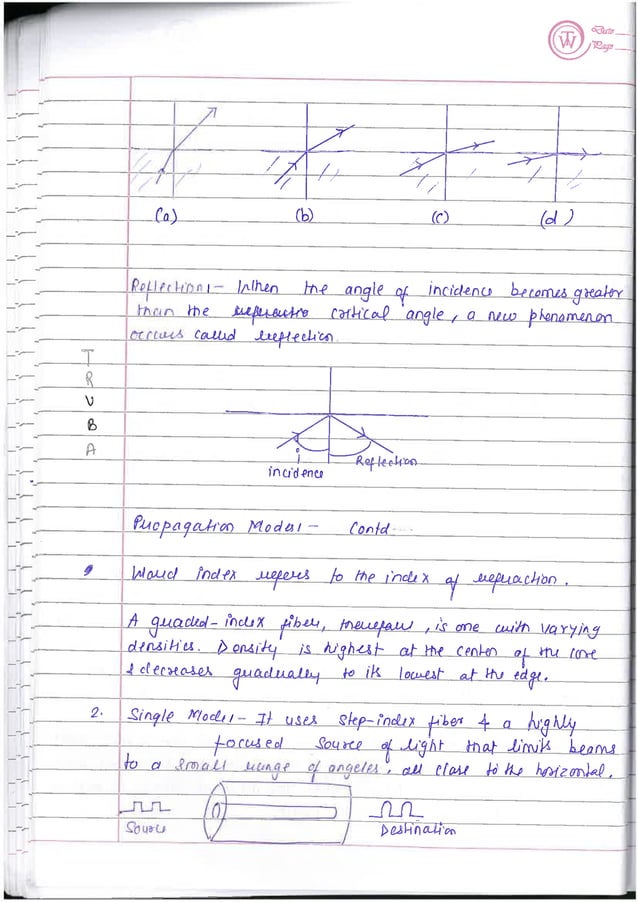 TW
Date
Page
(a) (b) (c) (d)
Reflection:- When the angle of incidence becomes greater
than the critical angle, a new phenomenon
occurs called reflection.
T
R
U
B
A
i
incidence
Reflection
Propagation Modes:- Contd....
Word index refers to the index of refraction.
A graded-index fiber, therefore, is one with varying
densities. Density is highest at the center of the core
& decreases gradually to its lowest at the edge.
2. Single Mode:- It uses step-index fiber & a highly
focused source of light that limits beams
to a small range of angeles, all close to the horizontal.
Source
Destination